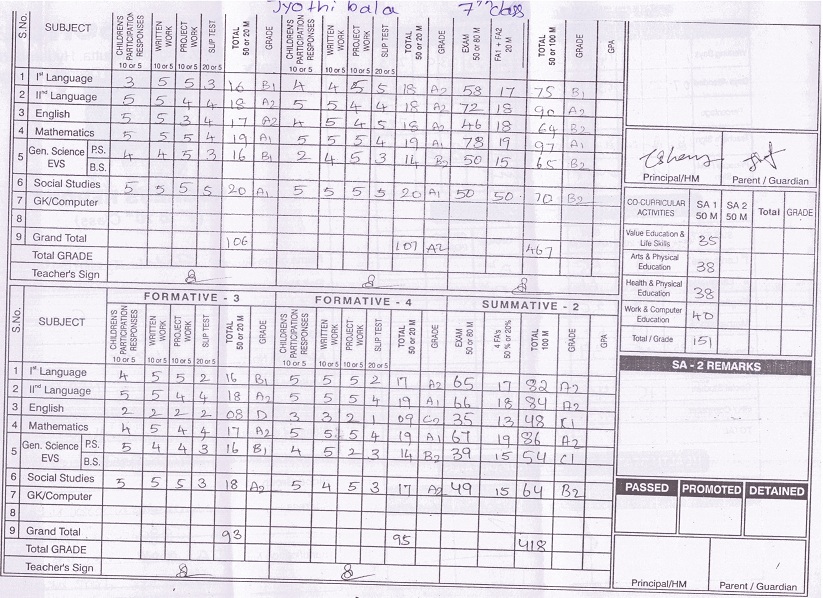 Jyothi bala 7th class
S.No. SUBJECT CHILDREN'S PARTICIPATION RESPONSES WRITTEN WORK PROJECT WORK SLIP TEST TOTAL 50 or 20 M GRADE CHILDREN'S PARTICIPATION RESPONSES WRITTEN WORK PROJECT WORK SLIP TEST TOTAL 50 or 20 M GRADE EXAM 50 or 80 M FA1 + FA2 20 M TOTAL 50 or 100 M GRADE GPA
10 or 5 10 or 5 10 or 5 20 or 5 10 or 5 10 or 5 10 or 5 20 or 5
1 Ist Language 3 5 5 3 16 B1 4 4 5 5 18 A2 58 17 75 B1
2 IInd Language 5 5 4 4 18 A2 5 5 4 4 18 A2 72 18 90 A2
3 English 5 5 3 4 17 A2 4 5 4 5 18 A2 46 18 64 B2
4 Mathematics 5 5 5 4 19 A1 5 5 5 4 19 A1 78 19 97 A1
5 Gen. Science EVS P.S. 4 4 5 3 16 B1 2 4 5 3 14 B2 50 15 65 B2
B.S.
6 Social Studies 5 5 5 5 20 A1 5 5 5 5 20 A1 50 50 70 B2
7 GK/Computer
8
9 Grand Total 106 107 A2 467
Total GRADE
Teacher's Sign
Principal/HM Parent / Guardian
CO-CURRICULAR ACTIVITIES SA 1 50 M SA 2 50 M Total GRADE
Value Education & Life Skills 35
Arts & Physical Education 38
Health & Physical Education 38
Work & Computer Education 40
Total / Grade 151
FORMATIVE - 3 FORMATIVE - 4 SUMMATIVE - 2
S.No. SUBJECT CHILDREN'S PARTICIPATION RESPONSES WRITTEN WORK PROJECT WORK SLIP TEST TOTAL 50 or 20 M GRADE CHILDREN'S PARTICIPATION RESPONSES WRITTEN WORK PROJECT WORK SLIP TEST TOTAL 50 or 20 M GRADE EXAM 50 or 80 M 4 FA's 50 % or 20% TOTAL 100 M GRADE GPA
10 or 5 10 or 5 10 or 5 20 or 5 10 or 5 10 or 5 10 or 5 20 or 5
1 Ist Language 4 5 5 2 16 B1 5 5 5 2 17 A2 65 17 82 A2
2 IInd Language 5 5 4 4 18 A2 5 5 5 4 19 A1 66 18 84 A2
3 English 2 2 2 2 08 D 3 3 2 1 09 C2 35 13 48 C1
4 Mathematics 4 5 4 4 17 A2 5 5 5 4 19 A1 67 19 86 A2
5 Gen. Science EVS P.S. 5 4 4 3 16 B1 4 5 2 3 14 B2 39 15 54 C1
B.S.
6 Social Studies 5 5 5 3 18 A2 5 4 5 3 17 A2 49 15 64 B2
7 GK/Computer
8
9 Grand Total 93 95 418
Total GRADE
Teacher's Sign
SA - 2 REMARKS
PASSED PROMOTED DETAINED
Principal/HM Parent / Guardian